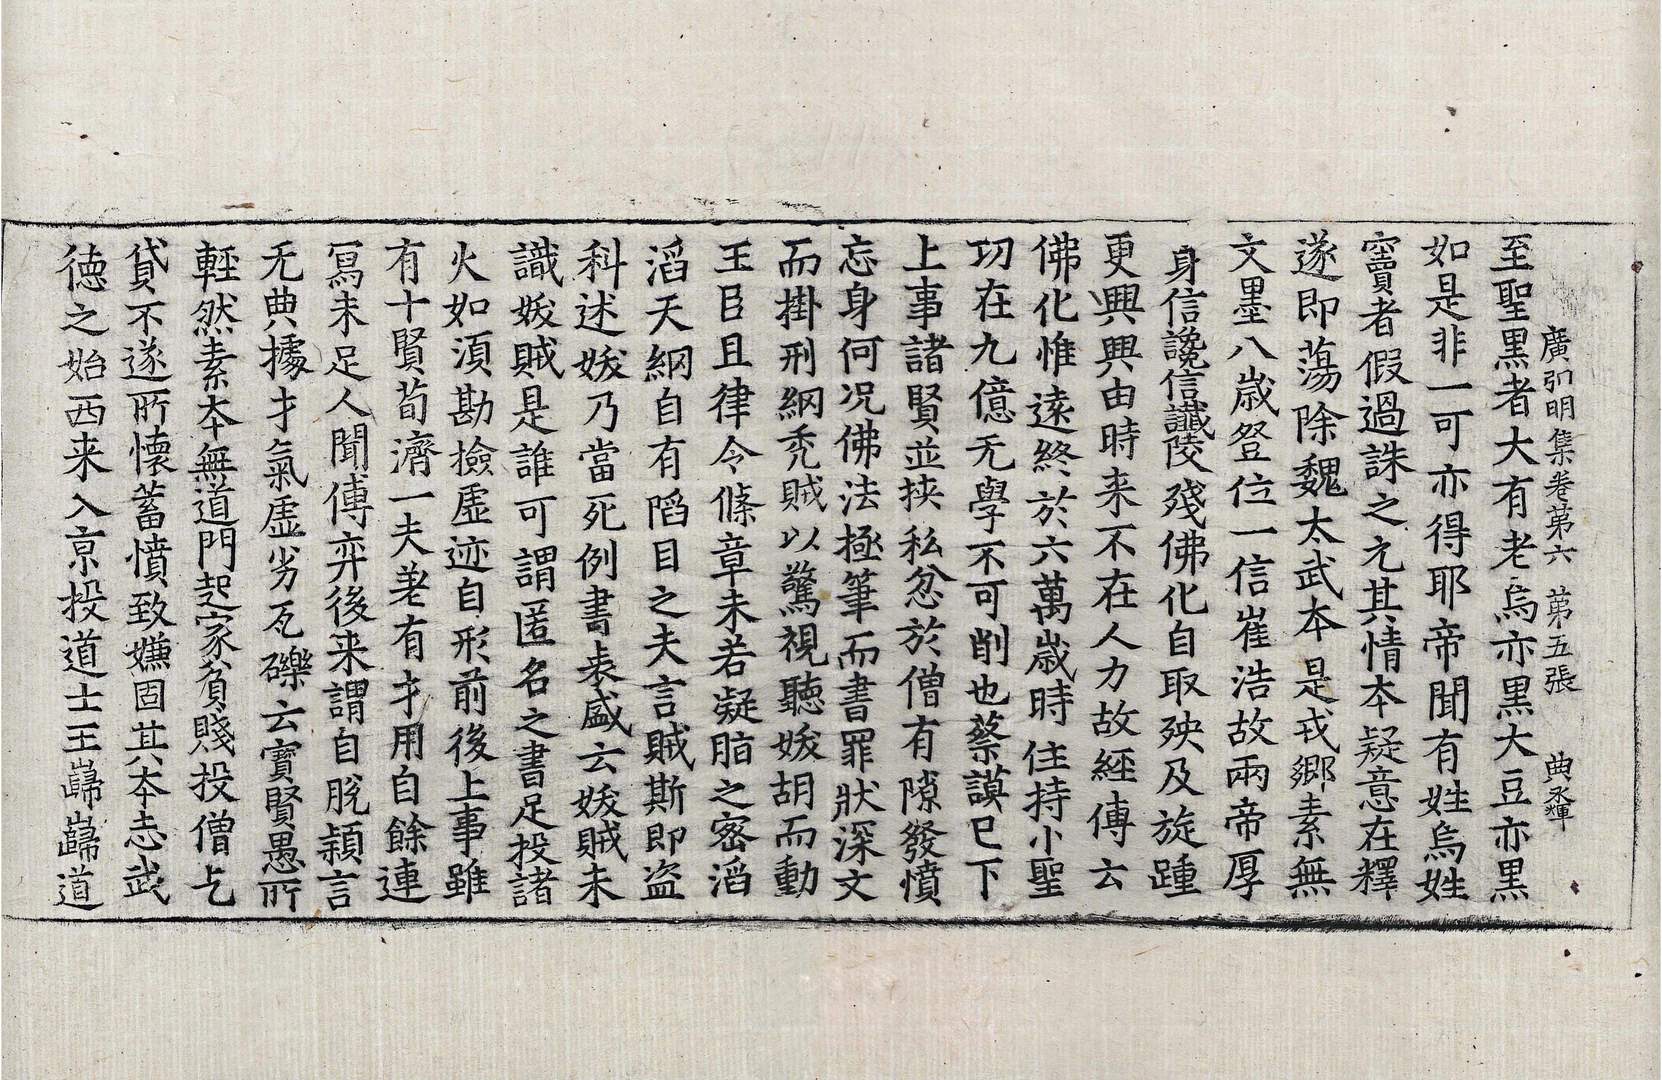 廣弘明集卷第六　第五張　典永暉
至聖黒者大有老烏亦黒大豆亦黒
如是非一可亦得耶帝聞有姓烏姓
竇者假過誅之允其情本疑意在釋
遂即蕩除魏太武本是戎鄉素無
文墨八歳登位一信崔浩故兩帝厚
身信讒信讖陵殘佛化自取殃及旋踵
更興興由時来不在人力故經傳云
佛化惟遠終於六萬歳時住持小聖
功在九億无學不可削也蔡謨已下
上事諸賢並挟私忿於僧有隙發憤
忘身何况佛法極筆而書罪狀深文
而掛刑網禿賊以驚視聽妭胡而動
王臣且律令條章未若凝脂之密滔
滔天網自有䧟目之夫言賊斯即盗
科述妭乃當死例書表盛云妭賊未
識妭賊是誰可謂匿名之書足投諸
火如湏勘撿虚迹自形前後上事雖
有十賢荀濟一夫差有才用自餘連
寫未足人聞傅弈後来謂自脫穎言
无典據才氣虚劣瓦礫云寶賢愚所
輕然素本無道門起家貧賤投僧乞
貸不遂所懷蓄憤致嫌固其本志武
徳之始西来入京投道士王巋巋道